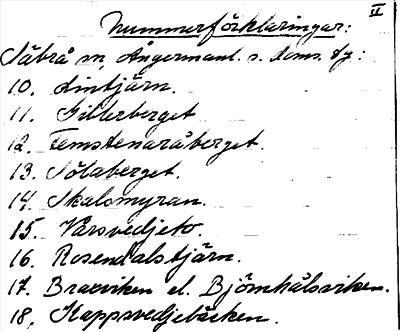 II
Nummerförklaringar:
Säbrå sn, Ångermanl. s. doms. dy:
10. Lintjärn.
11. Gillerberget
12. Femstenaråberget.
13. Sölaberget.
14. Skalsmyran.
15. Vårsvedjeto.
16. Rosendalstjärn.
17. Braxviken el. Björnhålsviken.
18, Kappsvedjebäcken.